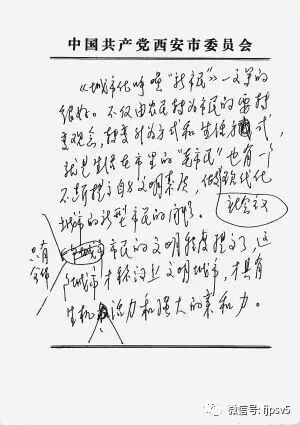 中国共产党西安市委员会
《城市化呼唤“新市民”》一文写的
很好。不仅由农民转为市民的要转
变观念，转变行为方式和生活方式，
就是生活在市里的“老市民”也有一个
不断提高自身文明素质，做现代化
社会主义
城市的新型市民的问题。
只有
全体
市民的文明程度提高了，这
城市才称得上文明城市，才具有
生机活力和强大的亲和力。
微信号: fjpsv5